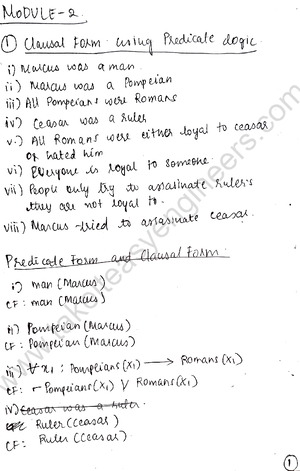 MODULE-2.
① Clausal Form using Predicate Logic
i) Marcus was a man.
ii) Marcus was a Pompeian
iii) All Pompeians were Romans
iv) Ceasar was a ruler
v) All Romans were either loyal to ceasar
or hated him
vi) Everyone is loyal to someone.
vii) People only try to assasinate ruler's
they are not loyal to.
viii) Marcus tried to assasinate ceasar.
Predicate Form and Clausal Form.
i) man (Marcus)
CF: man (Marcus)
ii) Pompeian (Marcus)
CF: Pompeian (Marcus)
iii) ∀x₁ : Pompeians(x₁) → Romans(x₁)
CF: ¬Pompeians(x₁) V Romans(x₁)
iv) Ceasar was a ruler
Ruler (Ceasar)
CF: Ruler (Ceasar)
①
www.takeiteasyengineers.com